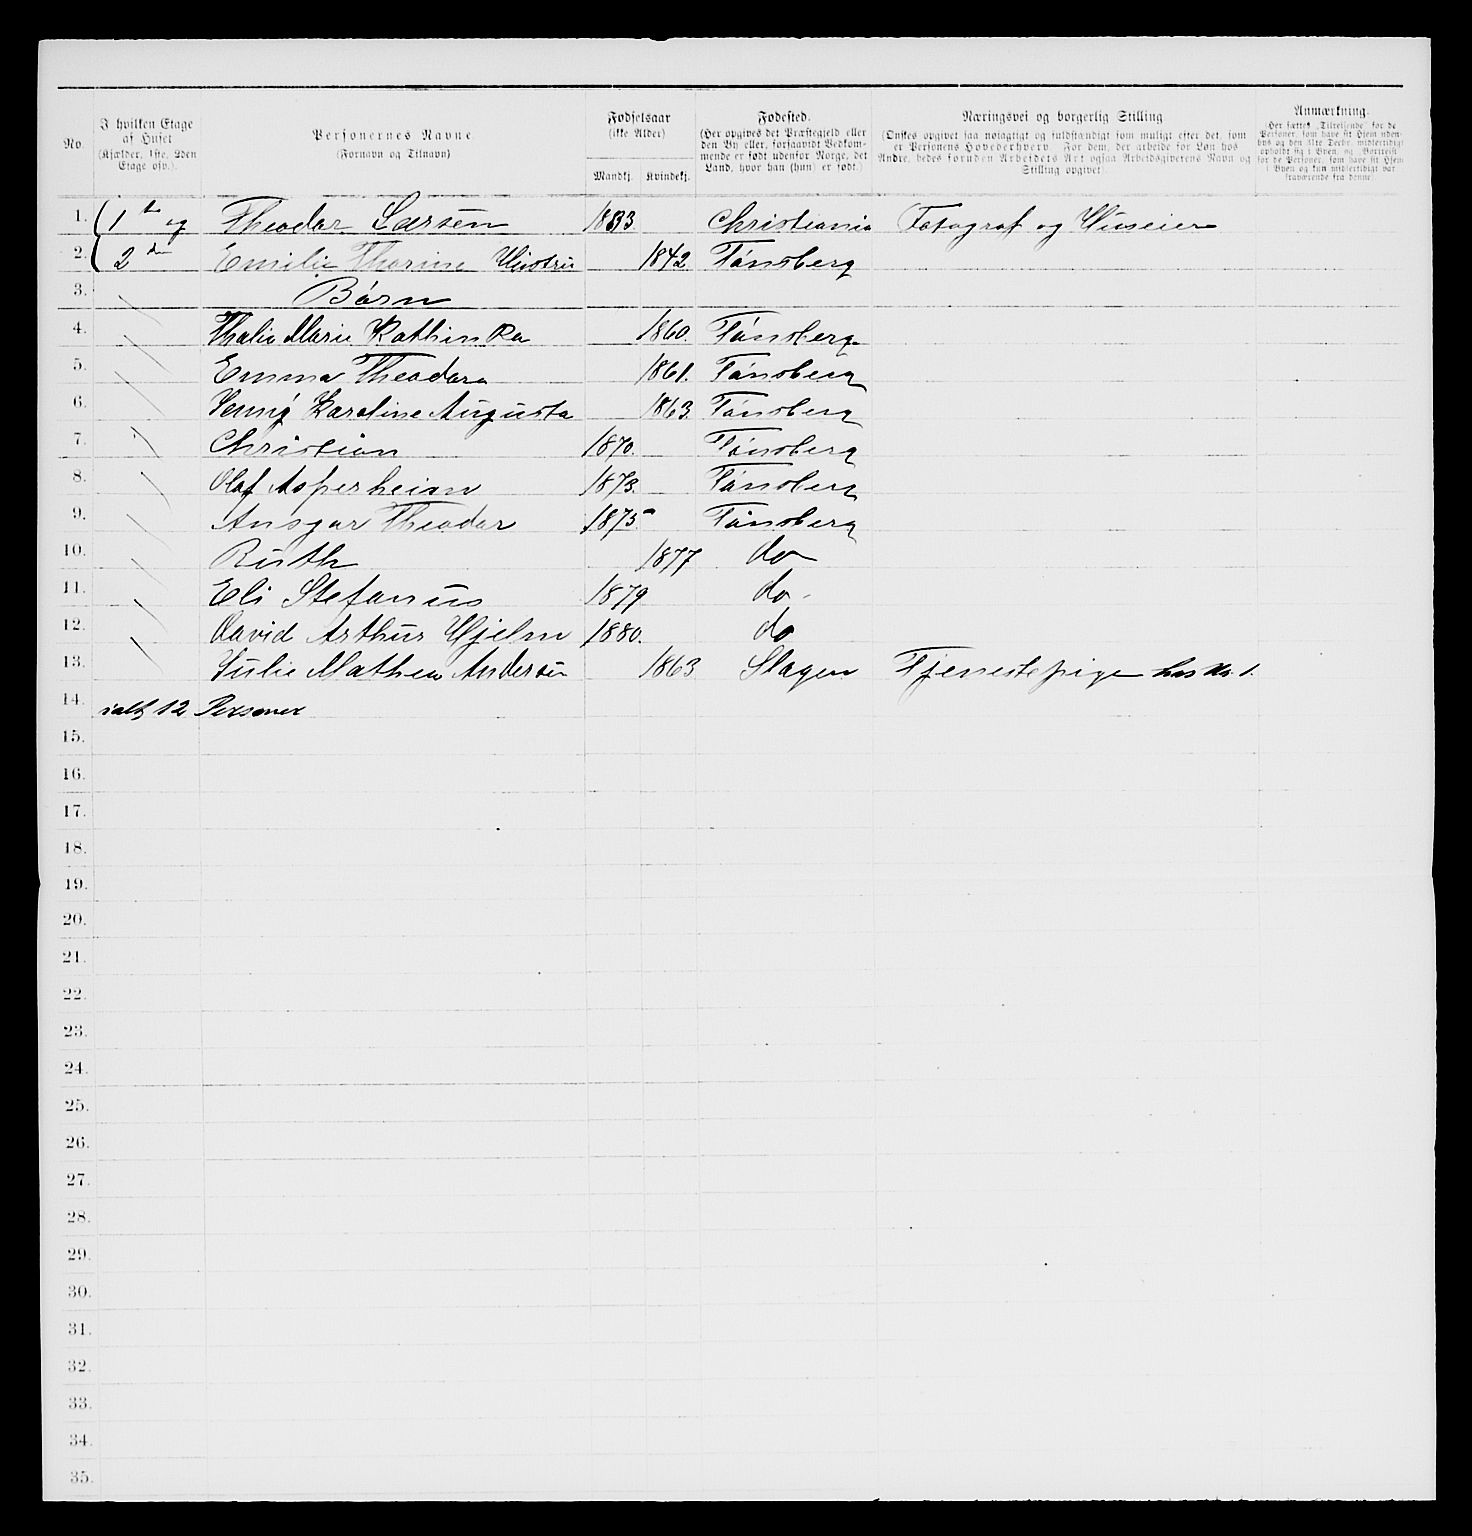 No.
I hvilken Etage af Huset (Kjælder, 1ste, 2den Etage osv.).
Personernes Navne (Fornavn og Tilnavn)
Fødselsaar (ikke Alder)
Mandkj. Kvindekj.
Fødested. (Her opgives det Præstegjeld eller den By eller, forsaavidt Vedkommende er født udenfor Norge, det Land, hvor han (hun) er født.)
Næringsvei og borgerlig Stilling (Ønskes opgivet saa nøiagtigt og fuldstændigt som muligt efter det, som er Personens Hovederhverv. For dem, der arbeide for Løn hos Andre, bedes foruden Arbeidets Art ogsaa Arbeidsgiverens Navn og Stilling opgivet).
Anmærkning. (Her sættes "Tilreisende" for de Personer, som have sit Hjem udenbys og den 31te Decbr. midlertidigt opholdt sig i Byen, og "Bortreist" for de Personer, som have sit Hjem i Byen og kun midlertidigt var fraværende fra denne)
1. 1te og Theodor Larsen 1833. Christiania Fotograf og Huseier
2. 2den Emilie Thorine Hustru 1842. Tønsberg
3. Børn
4. Thalie Marie Kathinka 1860. Tønsberg
5. Emma Theodora 1861. Tønsberg
6. Jenny Karoline Augusta 1863. Tønsberg
7. Christian 1870. Tønsberg
8. Olaf Asperheim 1873. Tønsberg
9. Ansgar Theodor 1875. Tønsberg
10. Ruth 1877 do
11. Eli Stefanus 1879 do
12. David Arthur Hjelm 1880. do
13. Julie Mathea Andersen 1863 Slagen Tjenestepige hos No. 1.
14. ialt 12 Personer
15.
16.
17.
18.
19.
20.
21.
22.
23.
24.
25.
26.
27.
28.
29.
30.
31.
32.
33.
34.
35.